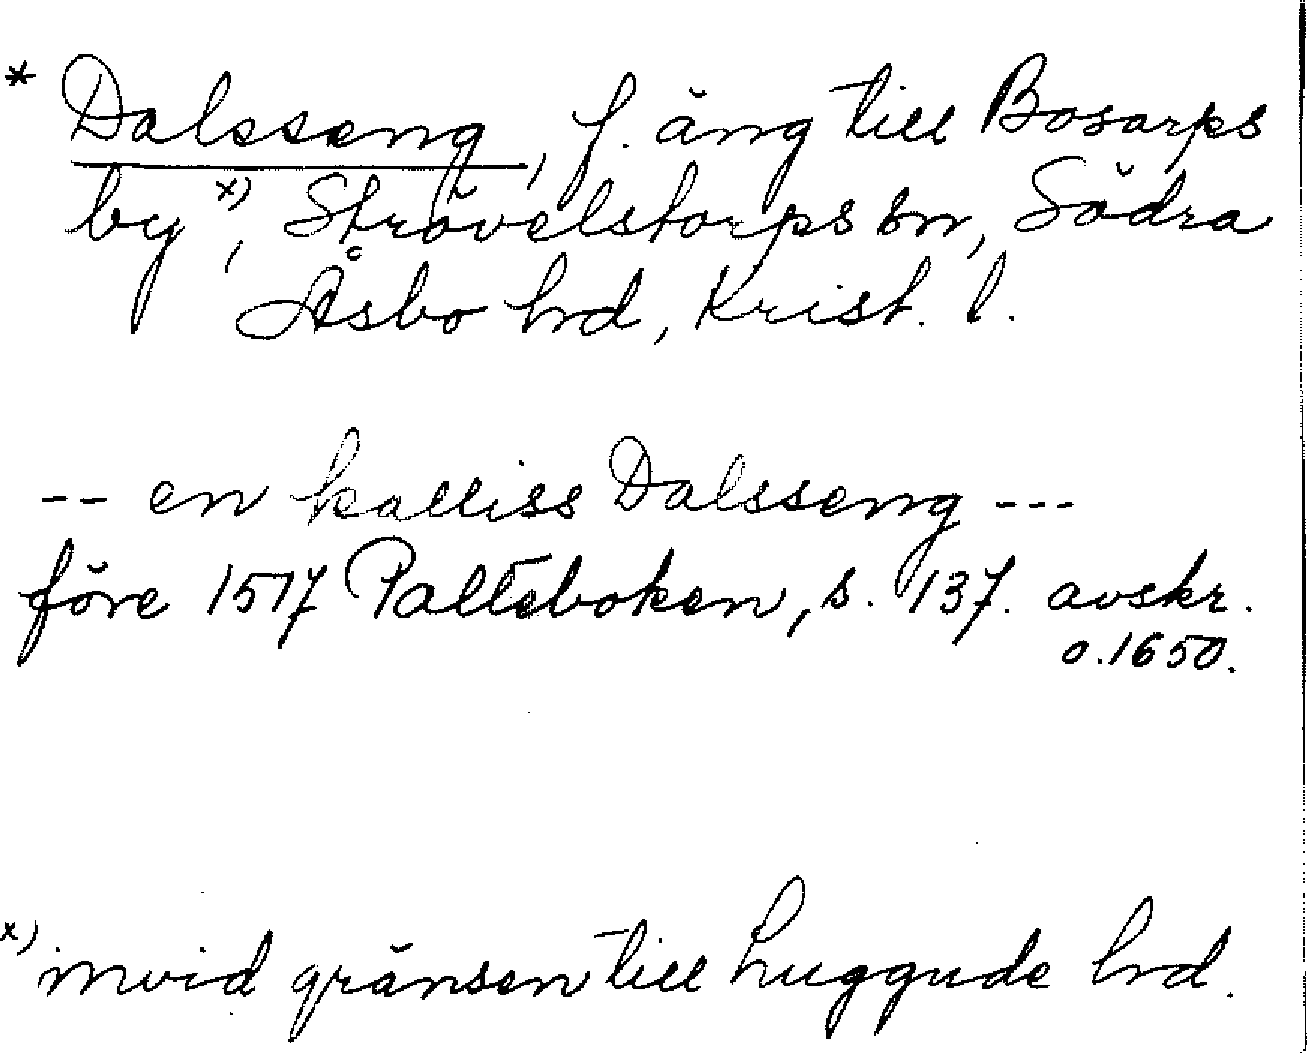 * Dalsseng, f. äng till Bosarps
by x), Strövelstorps sn, Södra
Åsbo hrd, Krist. l.
-- en kalliss Dalsseng ---
före 1517 Palteboken, s. 137. avskr.
o. 1650.
x) invid gränsen till Luggude hrd.